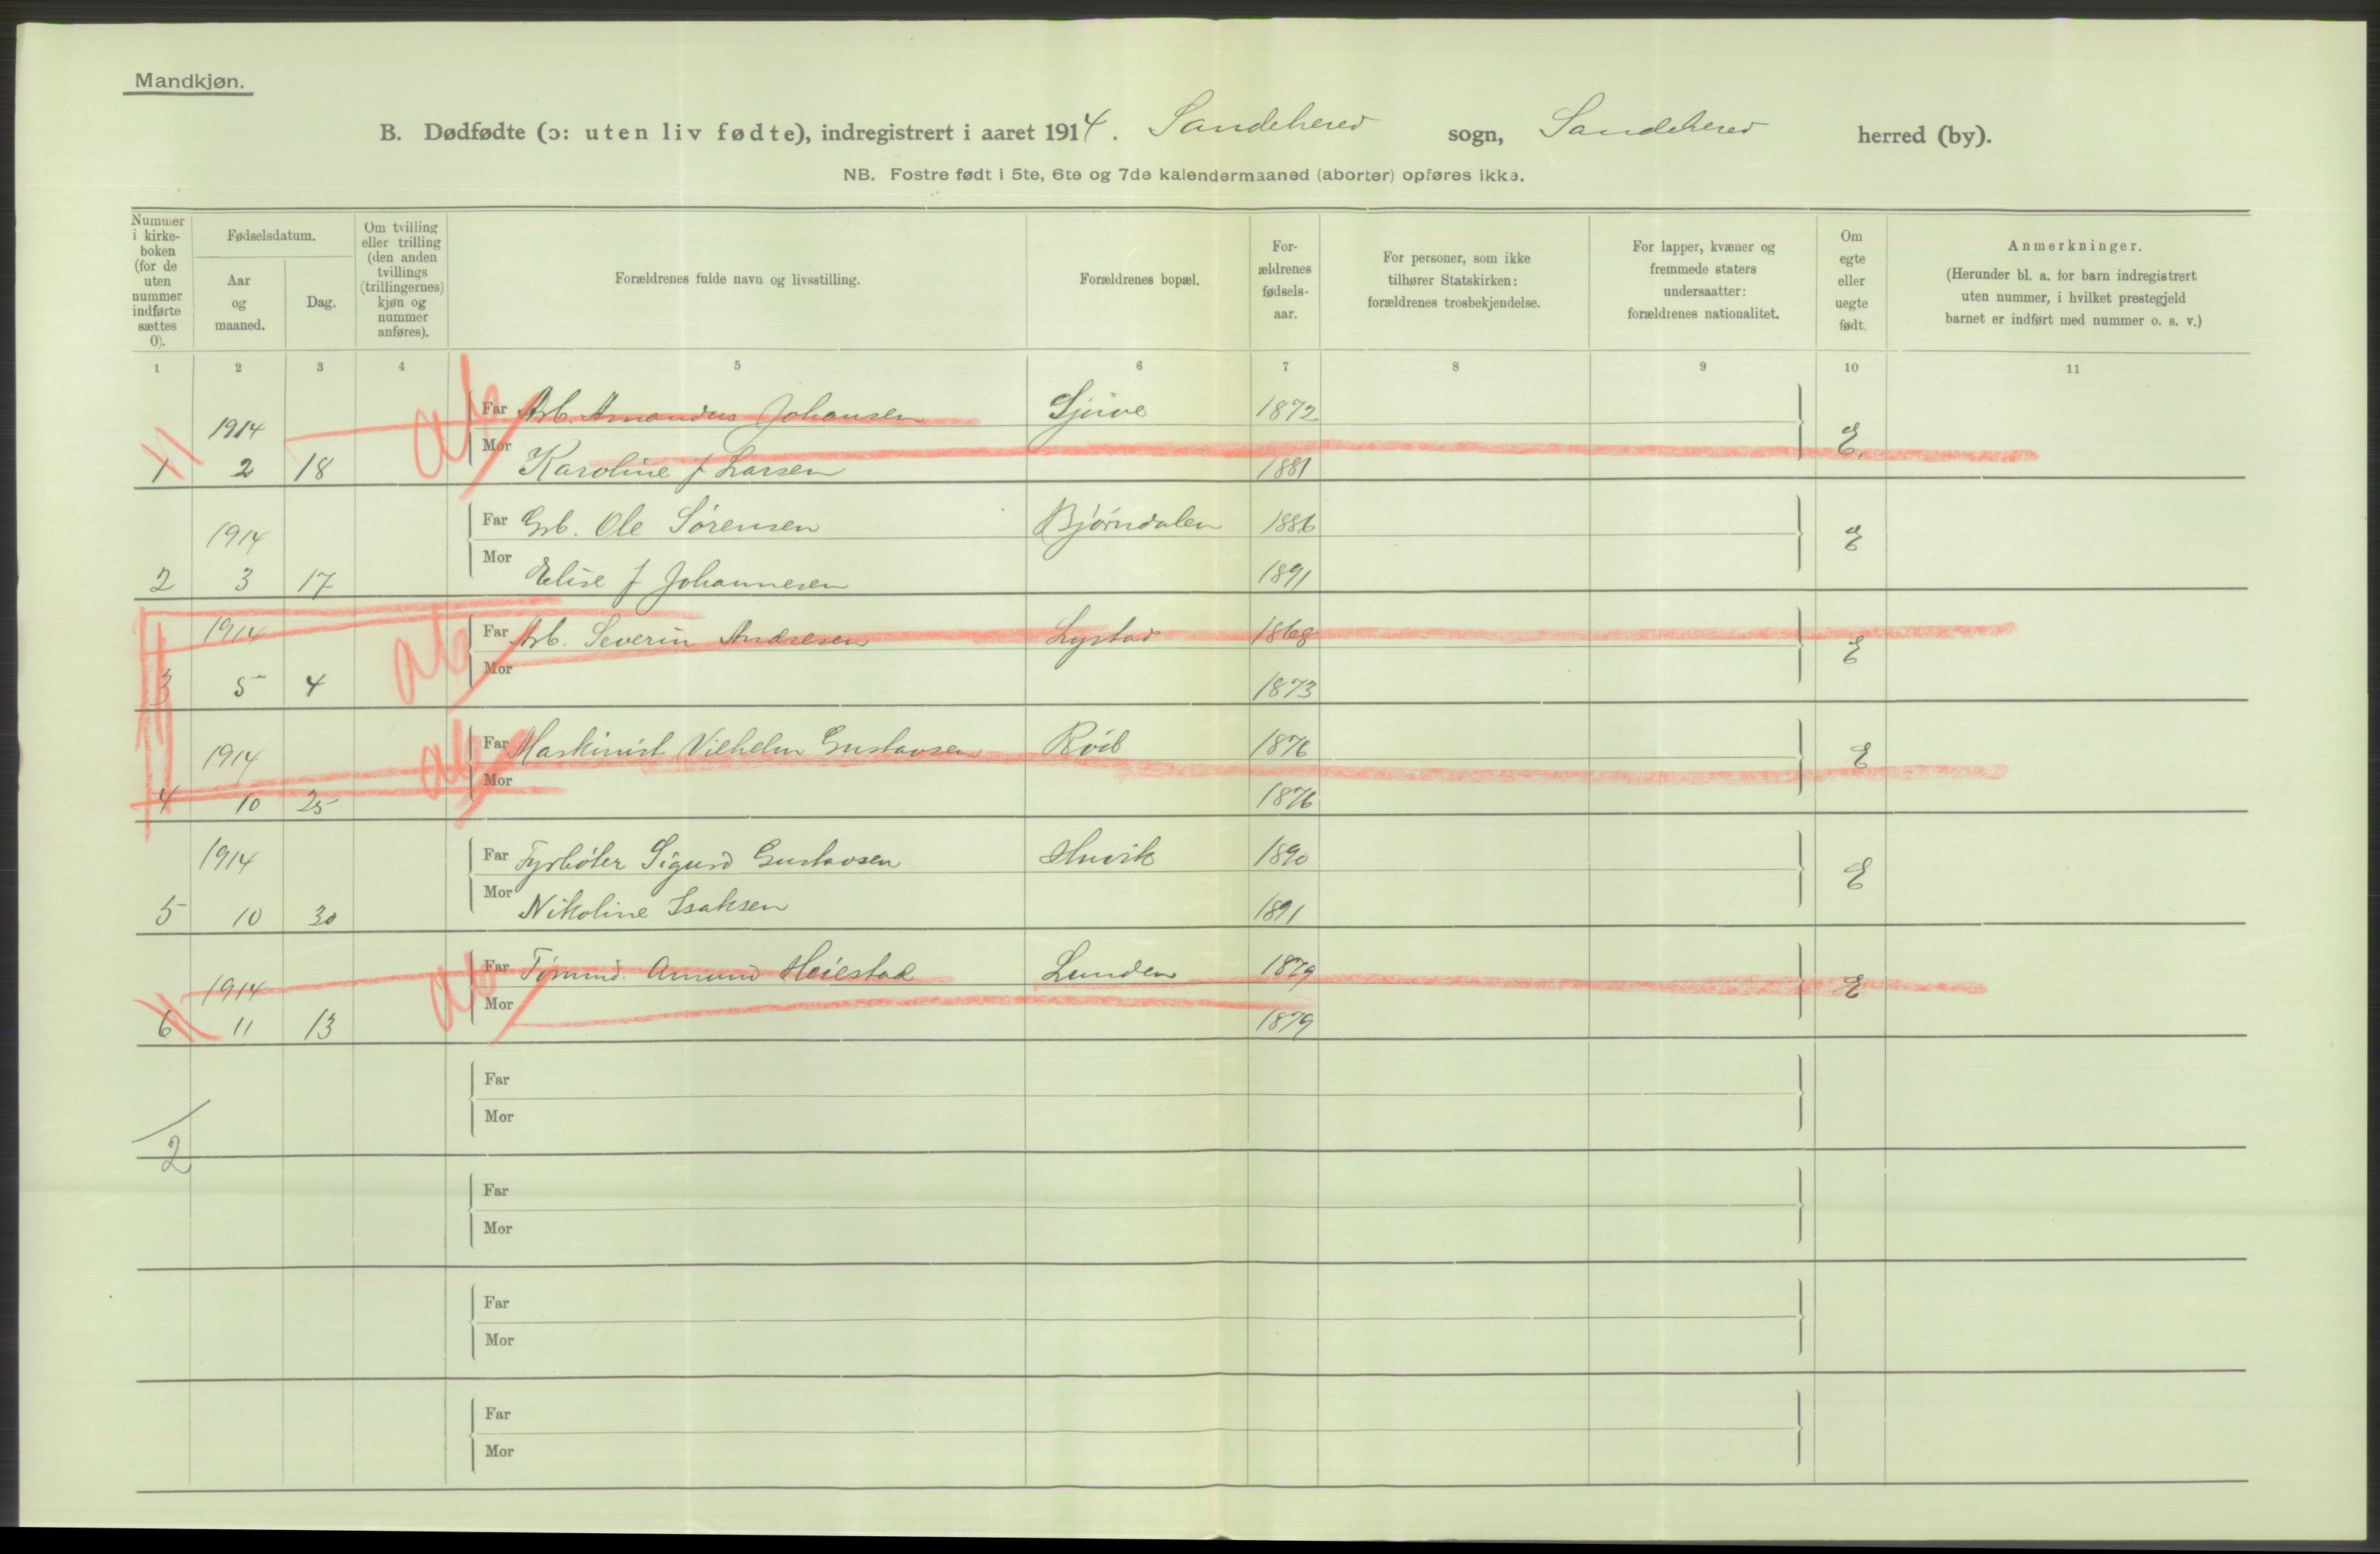 Mandkjøn.
B. Dødfødte (ɔ: uten liv fødte), indregistrert i aaret 1914. Sandeherred sogn, Sandeherred herred (by).
NB. Fostre født i 5te, 6te og 7de kalendermaaned (aborter) opføres ikke.
Nummer i kirke-boken (for de uten nummer indførte sættes 0).
Fødselsdatum.
Aar og maaned.
Dag.
Om tvilling eller trilling (den anden tvillings (trillingernes) kjøn og nummer anføres).
Forældrenes fulde navn og livsstilling.
Forældrenes bopæl.
For-ældrenes fødsels-aar.
For personer, som ikke tilhører Statskirken: forældrenes trosbekjendelse.
For lapper, kvæner og fremmede staters undersaatter: forældrenes nationalitet.
Om egte eller uegte født.
Anmerkninger.
(Herunder bl. a. for barn indregistrert uten nummer, i hvilket prestegjeld barnet er indført med nummer o. s. v.)
1 2 3 4 5 6 7 8 9 10 11
ab
1914 Far Arb. Amandus Johansen 1872 E.
1 2 18 Mor Karoline f Larsen 1881
1914 Far Ole Sørensen Bjørndalen 1886 E
2 3 17 Mor Elise f Johannesen 1891
ab
1914 Far Arb. Severin Andresen Lystad 1868 E
3 5 4 Mor 1873
ab
1914 Far Maskinist Vilhelm Gustavsen 1876 E
4 10 25 Mor 1876
1914 Far Fyrbøter Sigurd Gustavsen 1890 E
5 10 30 Mor Nikoline Isaksen 1891
ab
1914 Far Amund Lunden 1879 E
6 11 13 Mor 1879
Far
Mor
2
Far
Mor
Far
Mor
Far
Mor